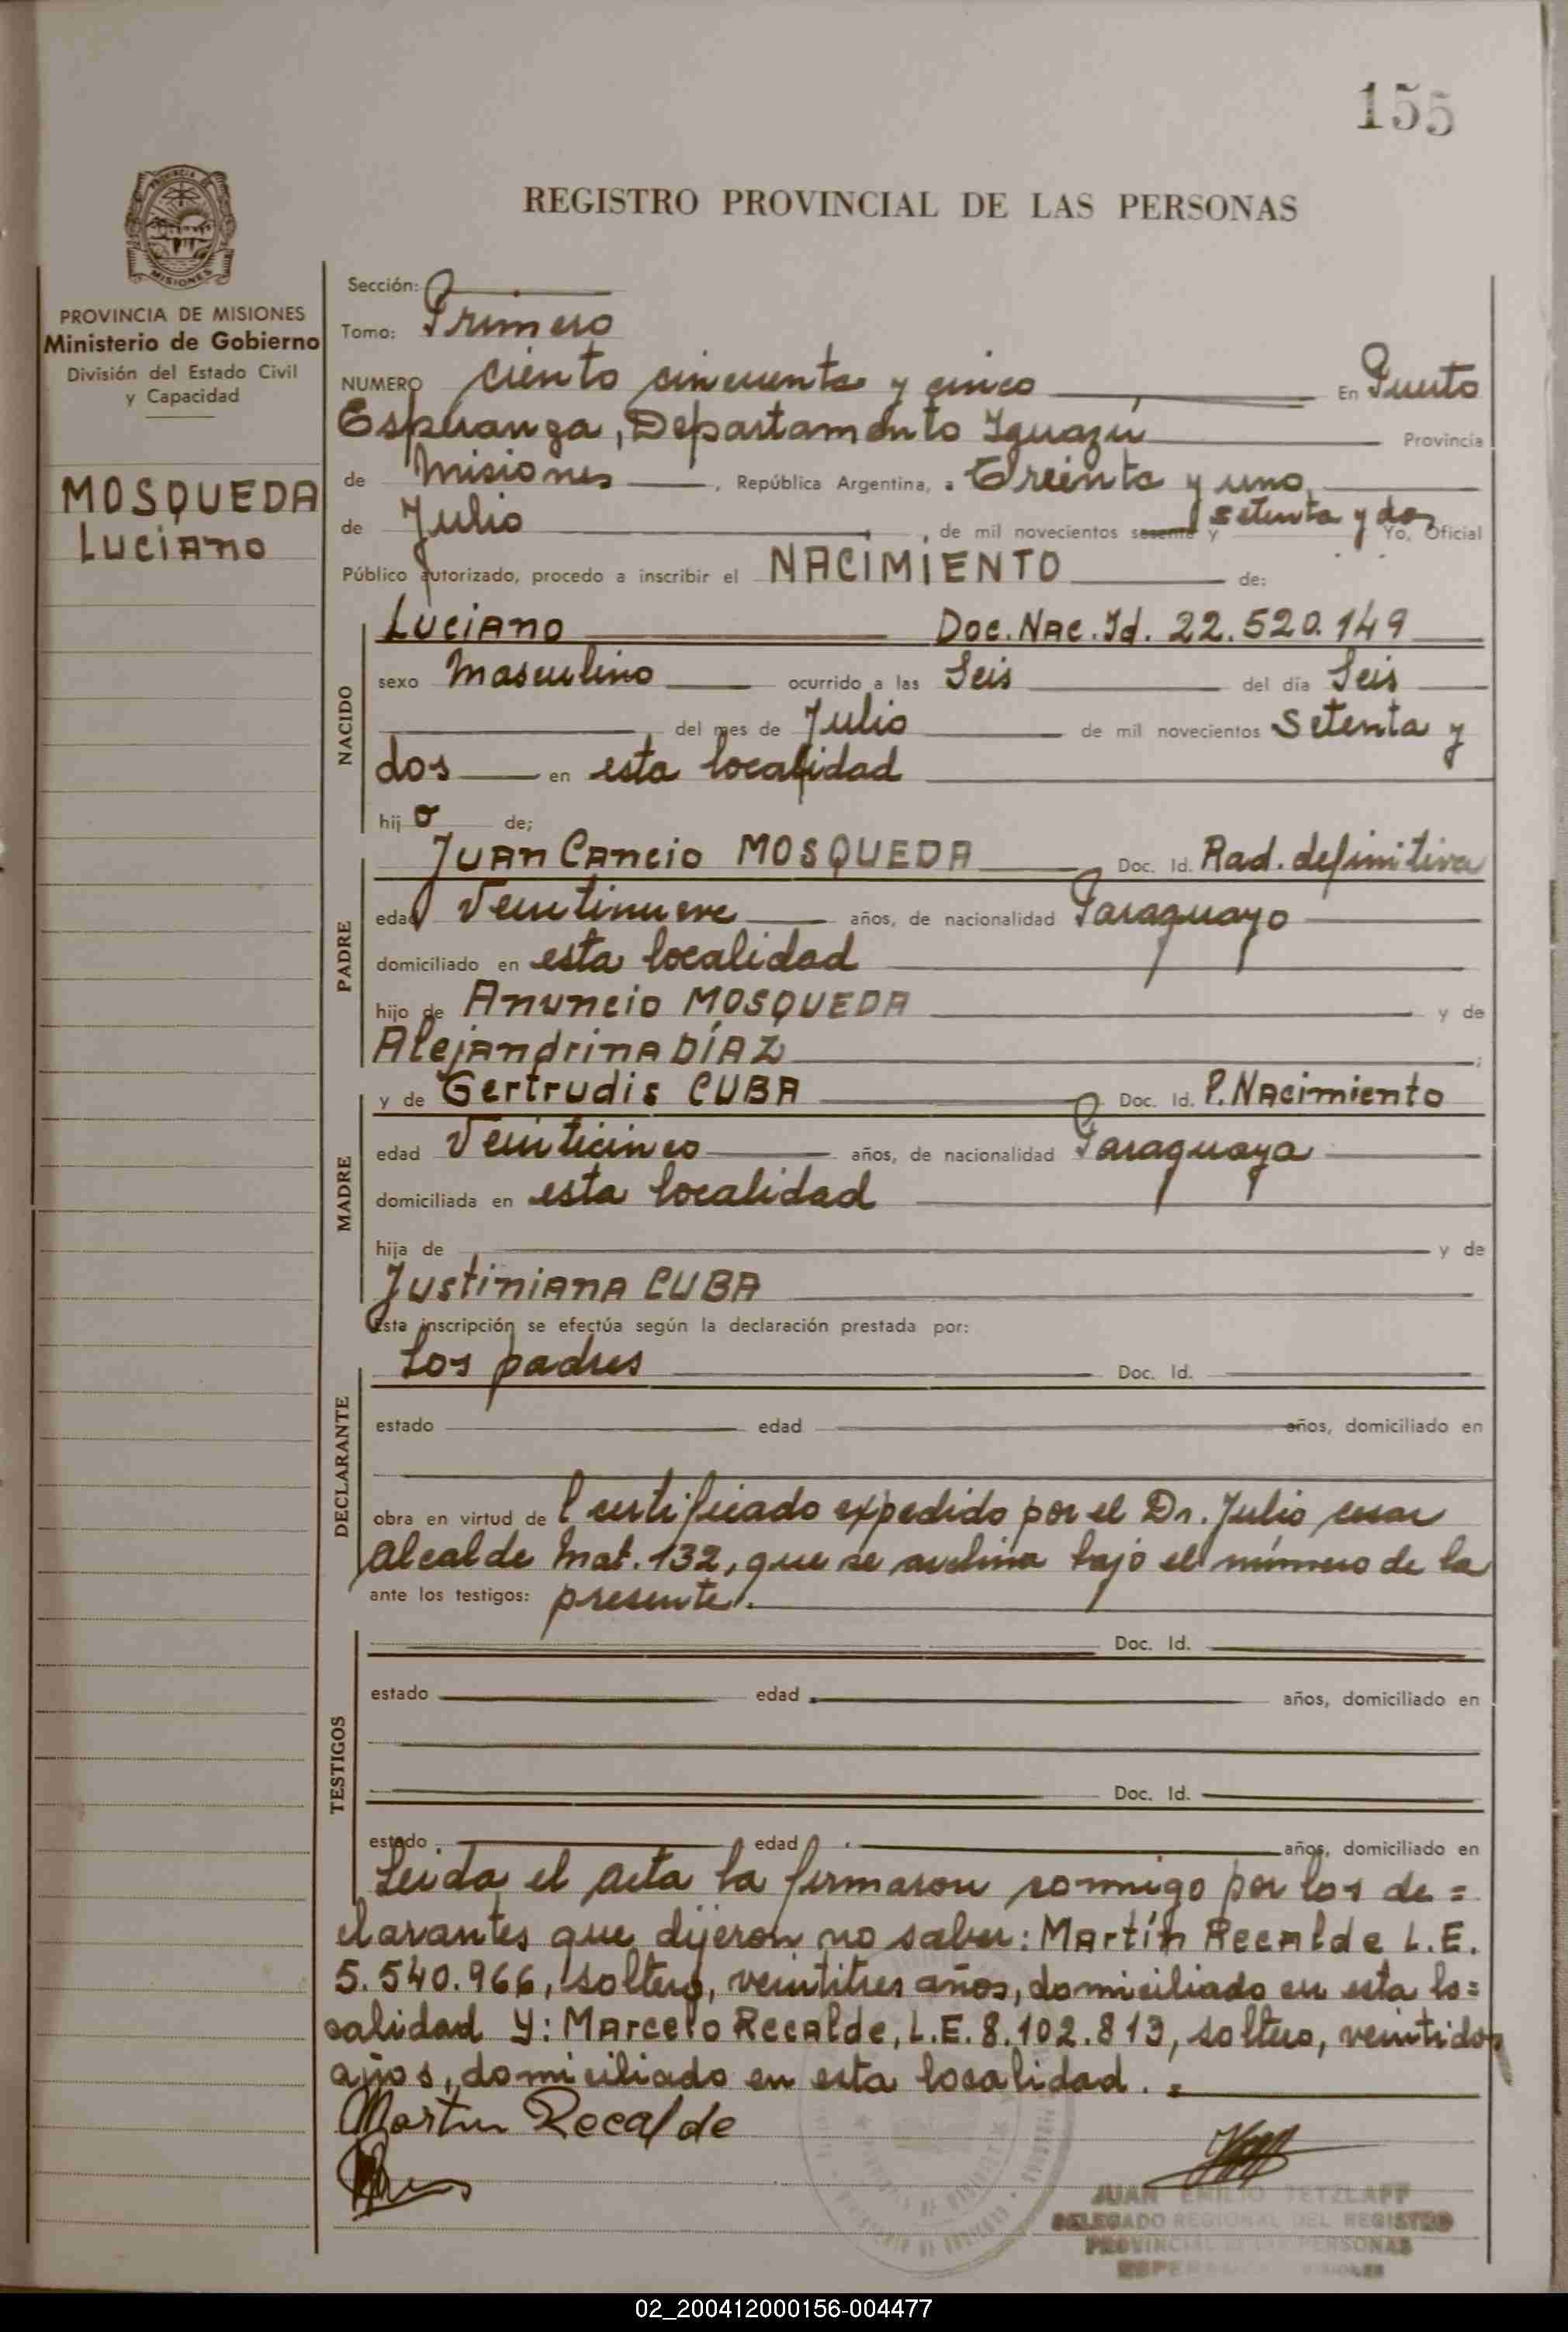 155
REGISTRO PROVINCIAL DE LAS PERSONAS
MISIONES
PROVINCIA DE MISIONES
Ministerio de Gobierno
División del Estado Civil
y Capacidad
MOSQUEDA
Luciano
Sección:
Tomo: Primero
NUMERO ciento cincuenta y cinco En Puerto
Esperanza, Departamento Iguazú Provincia
de Misiones, República Argentina, a Treinta y uno
de Julio, de mil novecientos sesenta y setenta y dos Yo, Oficial
Público autorizado, procedo a inscribir el NACIMIENTO de:
NACIDO
Luciano Doc. Nac. Id. 22.520.149
sexo Masculino ocurrido a las Seis del día Seis
del mes de Julio de mil novecientos Setenta y
dos en esta localidad
hij o de;
PADRE
Juan Cancio MOSQUEDA Doc. Id. Rad. definitiva
edad Veintinueve años, de nacionalidad Paraguayo
domiciliado en esta localidad
hijo de Anuncio MOSQUEDA y de
Alejandrina DÍAZ;
MADRE
y de Gertrudis CUBA Doc. Id. P. Nacimiento
edad Veinticinco años, de nacionalidad Paraguaya
domiciliada en esta localidad
hija de y de
Justiniana CUBA
Esta inscripción se efectúa según la declaración prestada por:
DECLARANTE
Los padres Doc. Id.
estado edad años, domiciliado en
obra en virtud de Certificado expedido por el Dr. Julio cesar
Alcalde Mat. 132, que se archiva bajo el número de la
ante los testigos: presente.
TESTIGOS
Doc. Id.
estado edad años, domiciliado en
Doc. Id.
estado edad años, domiciliado en
Leida el acta la firmaron conmigo por los de=
clarantes que dijeron no saber: Martín Recalde L.E.
5.540.966, soltero, veintitres años, domiciliado en esta lo=
calidad Y: Marcelo Recalde, L.E. 8.102.813, soltero, veintidos
años, domiciliado en esta localidad. =
Martin Recalde
JUAN EMILIO TETZLAFF
DELEGADO REGIONAL DEL REGISTRO
PROVINCIAL DE LAS PERSONAS
02_200412000156-004477